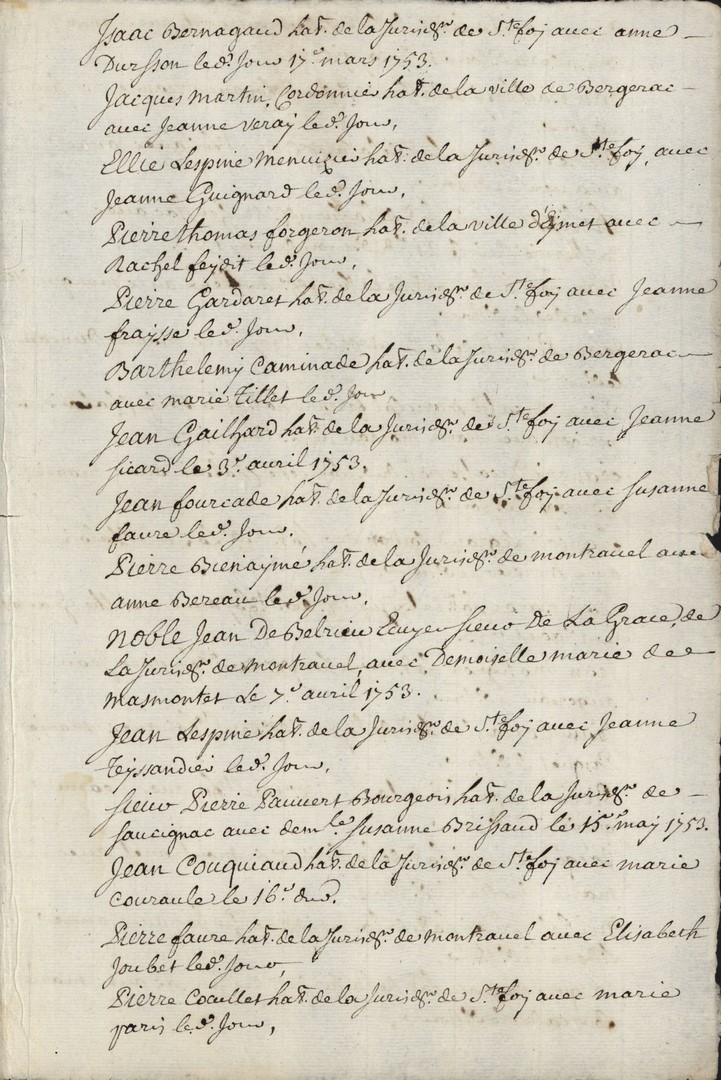 Isaac Bernagaud hat. de la Jurisd.on de S.te foy avec anne
Dursson led. Jour 17.e mars 1753.
Jacques martin, Cordonnie hat. de la ville de Bergerac
avec Jeanne veray led. Jour,
Ellie Lespine menuizie hat. de la Jurisd.on de S.te foy, avec
Jeanne Guignard led. Jour,
Pierre thomas forgeron hat. de la ville d'Eymet avec
Rachel feydit led. Jour,
Pierre Gardaret hat. de la Jurisd.on de S.te foy avec Jeanne
fraysse led. Jour,
Barthelemy Caminade hat. de la Jurisd.on de Bergerac
avec marie Tillet led. Jour
Jean Gailhard hat. de la Jurisd.on de S.te foy avec Jeanne
sicard le 3.e avril 1753.
Jean fourcade hat. de la Jurisd.on de S.te foy avec susanne
faure led. Jour.
Pierre Bienaymé hat. de la Jurisd.on de montravel avec
anne Bereau led. Jour,
noble Jean De Belrieu Ecuyer sieur De La Grace, de
La Jurisd.on de montravel, avec Demoiselle marie de
masmontet Le 7.e avril 1753.
Jean Lespine hat. de la Jurisd.on de S.te foy avec Jeanne
teyssandiei led. Jour,
sieur Pierre Pauvert Bourgeois hat. de la Jurisd.on de
saucignac avec dem.lle susanne Brissaud le 15.e may 1753.
Jean Couquiaud hat. de la Jurisd.on de S.te foy avec marie
couraule le 16.e dud.
Pierre faure hat. de la Jurisd.on de montravel avec Elisabeth
Joubet led. Jour,
Pierre Cocullet hat. de la Jurisd.on de S.te foy avec marie
paris led. Jour,